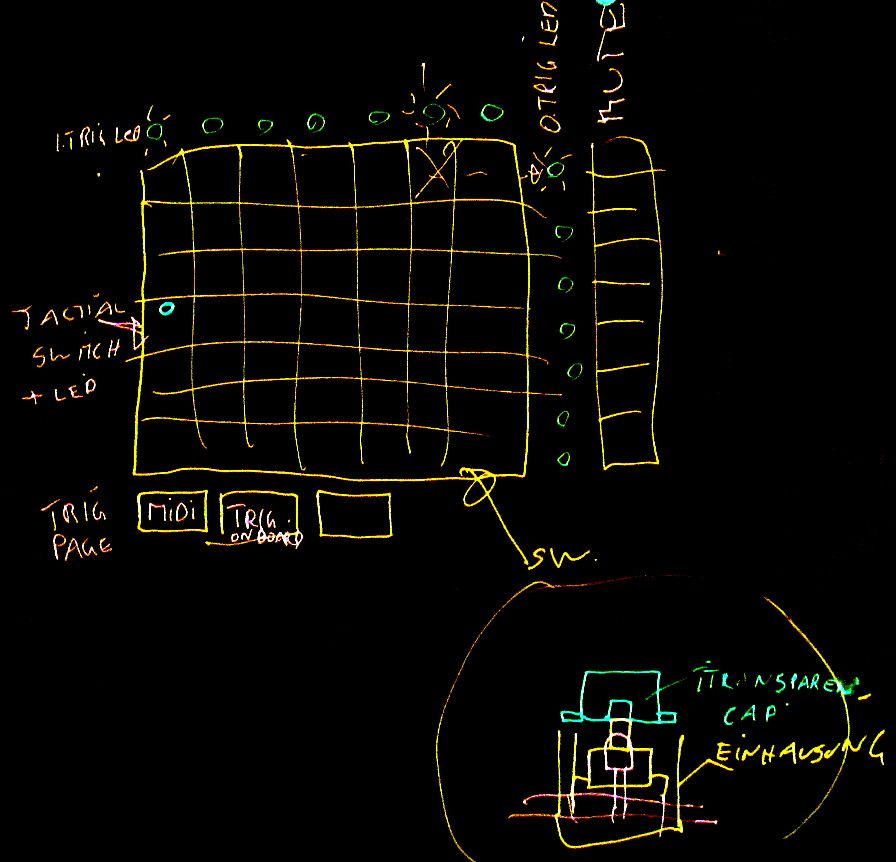 OTRIG LED
MUTE
ITRIG LED
TACTIAL
SWITCH
+ LED
TRIG
PAGE
MIDI
TRIG.
ONBOARD
SW.
TRANSPAREN
CAP.
EINHAUSUNG